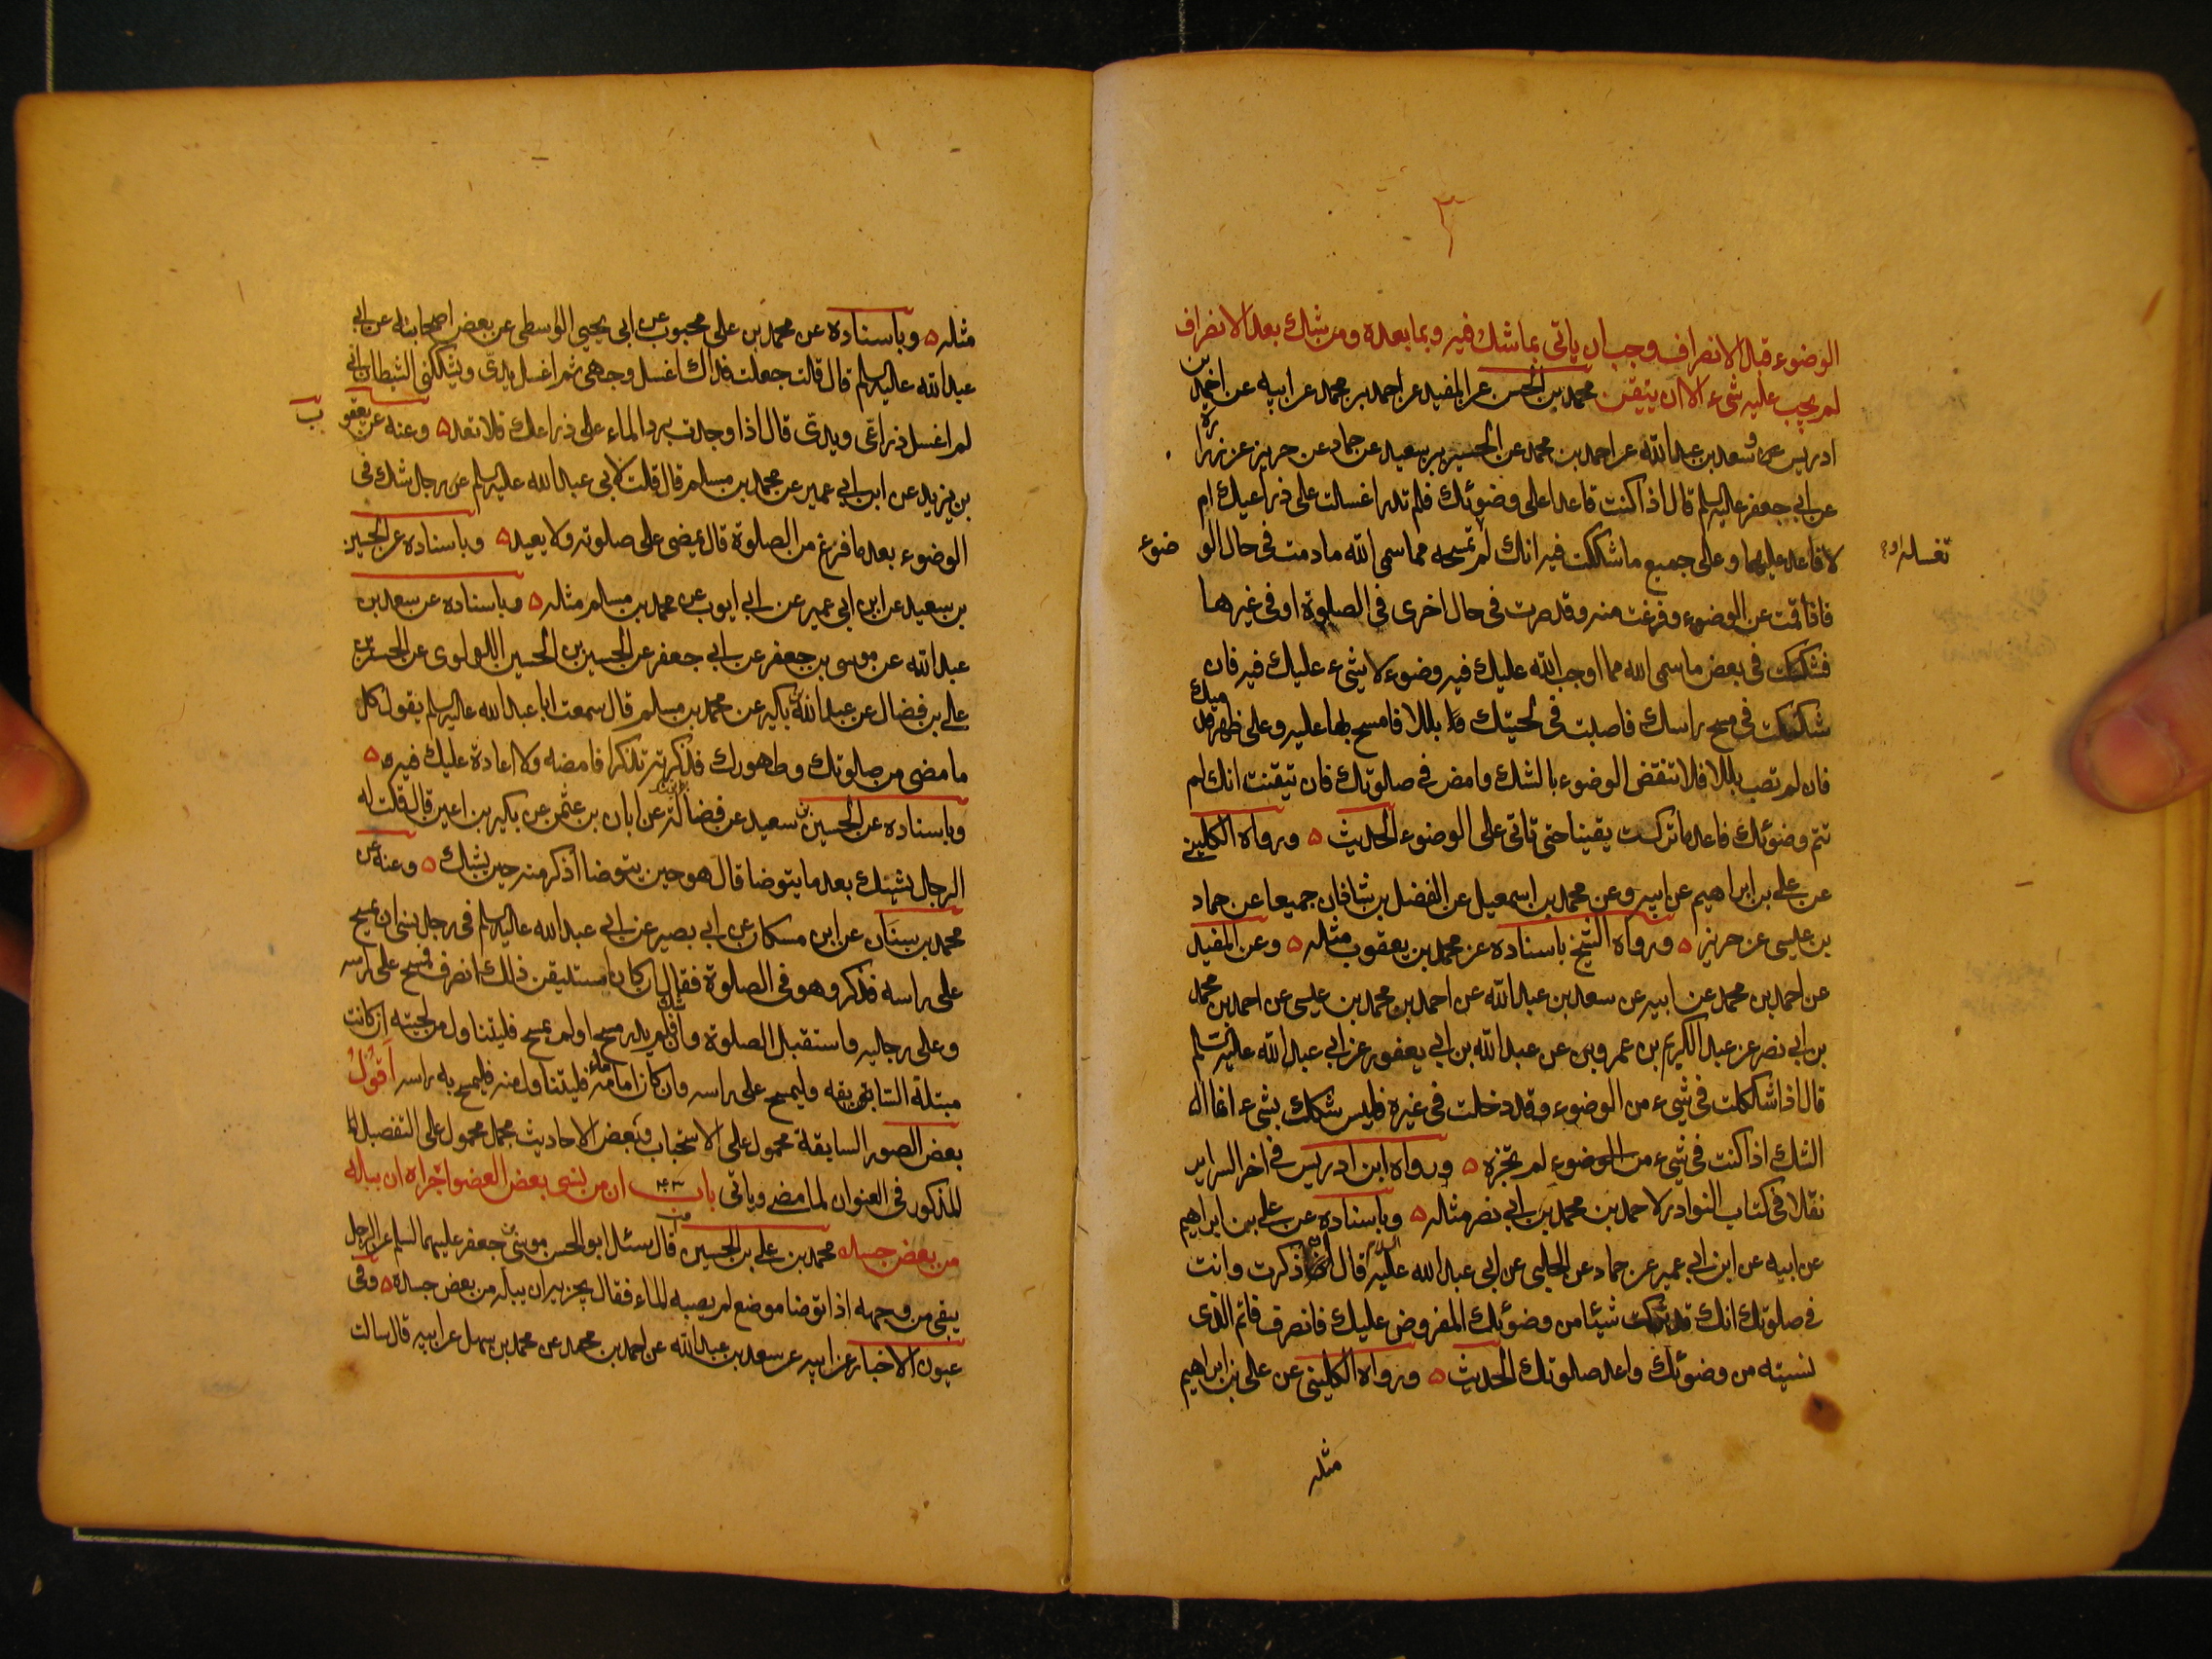 الوضوء قبل الانصراف وجب ان ياتى بما شك فيه وبما بعده ومن شك بعد الانصراف
لم يجب عليه شىء الا ان يتيقن محمد بن الحسن عن المفيد عن احمد بن محمد عن ابيه عن احمد بن
ادريس وسعد بن عبد الله عن احمد بن محمد عن الحسين بن سعيد عن حماد عن حريز عن زرارة
عن ابى جعفر عليه السلم قال اذا كنت قاعدا على وضوئك فلم تدر اغسلت على ذراعيك ام
لا فاعد عليهما وعلى جميع ما شككت فيه انك لم تغسله او تمسحه مما سمى الله ما دمت فى حال الوضوء
فاذا قمت عن الوضوء وفرغت منه وقد صرت فى حال اخرى فى الصلوة او فى غيرها
فشككت فى بعض ما سمى الله مما اوجب الله عليك فيه وضوء لا شىء عليك فيه فان
شككت فى مسح راسك فاصبت فى لحيتك بللا فامسح بها عليه وعلى ظهر قدميك
فان لم تصب بللا فلا تنقض الوضوء بالشك وامض فى صلوتك فان تيقنت انك لم
تتم وضوئك فاعد ما تركت يقينا حتى تاتى على الوضوء الحديث ۵ ورواه الكلينى
عن على بن ابراهيم عن ابيه وعن محمد بن اسمعيل عن الفضل بن شاذان جميعا عن حماد
بن عيسى عن حريز ۵ ورواه الشيخ باسناده عن محمد بن يعقوب مثله ۵ وعن المفيد
عن احمد بن محمد عن ابيه عن سعد بن عبد الله عن احمد بن محمد بن عيسى عن احمد بن محمد
بن ابى نصر عن عبد الكريم بن عمرو عن عبد الله بن ابى يعفور عن ابى عبد الله عليه السلم
قال اذا شككت فى شىء من الوضوء وقد دخلت فى غيره فليس شكك بشىء انما
الشك اذا كنت فى شىء من الوضوء لم تجزه ۵ ورواه ابن ادريس فى اخر السراير
نقلا فى كتاب النوادر لاحمد بن محمد بن ابى نصر مثله ۵ وباسناده عن على بن ابراهيم
عن ابيه عن ابن ابى عمير عن حماد عن الحلبى عن ابى عبد الله عليه السلام قال اذا ذكرت وانت
فى صلوتك انك قد تركت شيئا من وضوئك المفروض عليك فانصرف فاتم الذى
نسيته من وضوئك واعد صلوتك الحديث ۵ ورواه الكلينى عن على بن ابراهيم
مثله
مثله ۵ وباسناده عن محمد بن على محبوب عن ابى يحيى الواسطى عن بعض اصحابنا عن ابى
عبد الله عليه السلم قال قلت جعلت فداك اغسل وجهى ثم اغسل يدى ويشككنى الشيطان انى
لم اغسل ذراعى ويدى قال اذا وجدت برد الماء على ذراعك فلا تعد ۵ وعنه عن يعقوب
بن يزيد عن ابن ابى عمير عن محمد بن مسلم قال قلت لابى عبد الله عليه السلم عن رجل شك فى
الوضوء بعد ما فرغ من الصلوة قال يمضى على صلوته ولا يعيد ۵ وباسناده عن الحسين
بن سعيد عن ابن ابى عمير عن ابى ايوب عن محمد بن مسلم مثله ۵ وباسناده عن سعد بن
عبد الله عن موسى بن جعفر عن ابى جعفر عن الحسين بن الحسين اللولوى عن الحسن بن
على بن فضال عن عبد الله بن بكير عن محمد بن مسلم قال سمعت ابا عبد الله عليه السلم يقول كل
ما مضى من صلوتك وطهورك فذكرته تذكرا فامضه ولا اعادة عليك فيه ۵
وباسناده عن الحسين بن سعيد عن فضالة عن ابان بن عثمن عن بكير بن اعين قال قلت له
الرجل يشك بعد ما يتوضا قال هو حين يتوضا اذكر منه حين يشك ۵ وعنه عن
محمد بن سنان عن ابن مسكان عن ابى بصير عن ابى عبد الله عليه السلم فى رجل نسى ان يمسح
على راسه فذكر وهو فى الصلوة فقال ان كان استيقن ذلك انصرف فمسح على راسه
وعلى رجليه واستقبل الصلوة وان شك فلم يدر مسح او لم يمسح فليتناول من لحيته ان كانت
مبتلة وليمسح على راسه وان كان امامه ماء فليتناول منه فليمسح به راسه اقول
بعض الصور السابقة محمول على الاستحباب وبعض الاحاديث مجمل محمول على التفصيل
المذكور فى العنوان لما مضى وياتى باب ۴۳ ان من نسى بعض العضو اجزاه ان يبله
من بعض جسده محمد بن على بن الحسين قال سئل ابو الحسن موسى بن جعفر عليهما السلم عن الرجل
يبقى من وجهه اذا توضا موضع لم يصبه الماء فقال يجزيه ان يبله من بعض جسده ۵ وفى
عيون الاخبار عن ابيه عن سعد بن عبد الله عن احمد بن محمد عن محمد بن سهل عن ابيه قال سالت